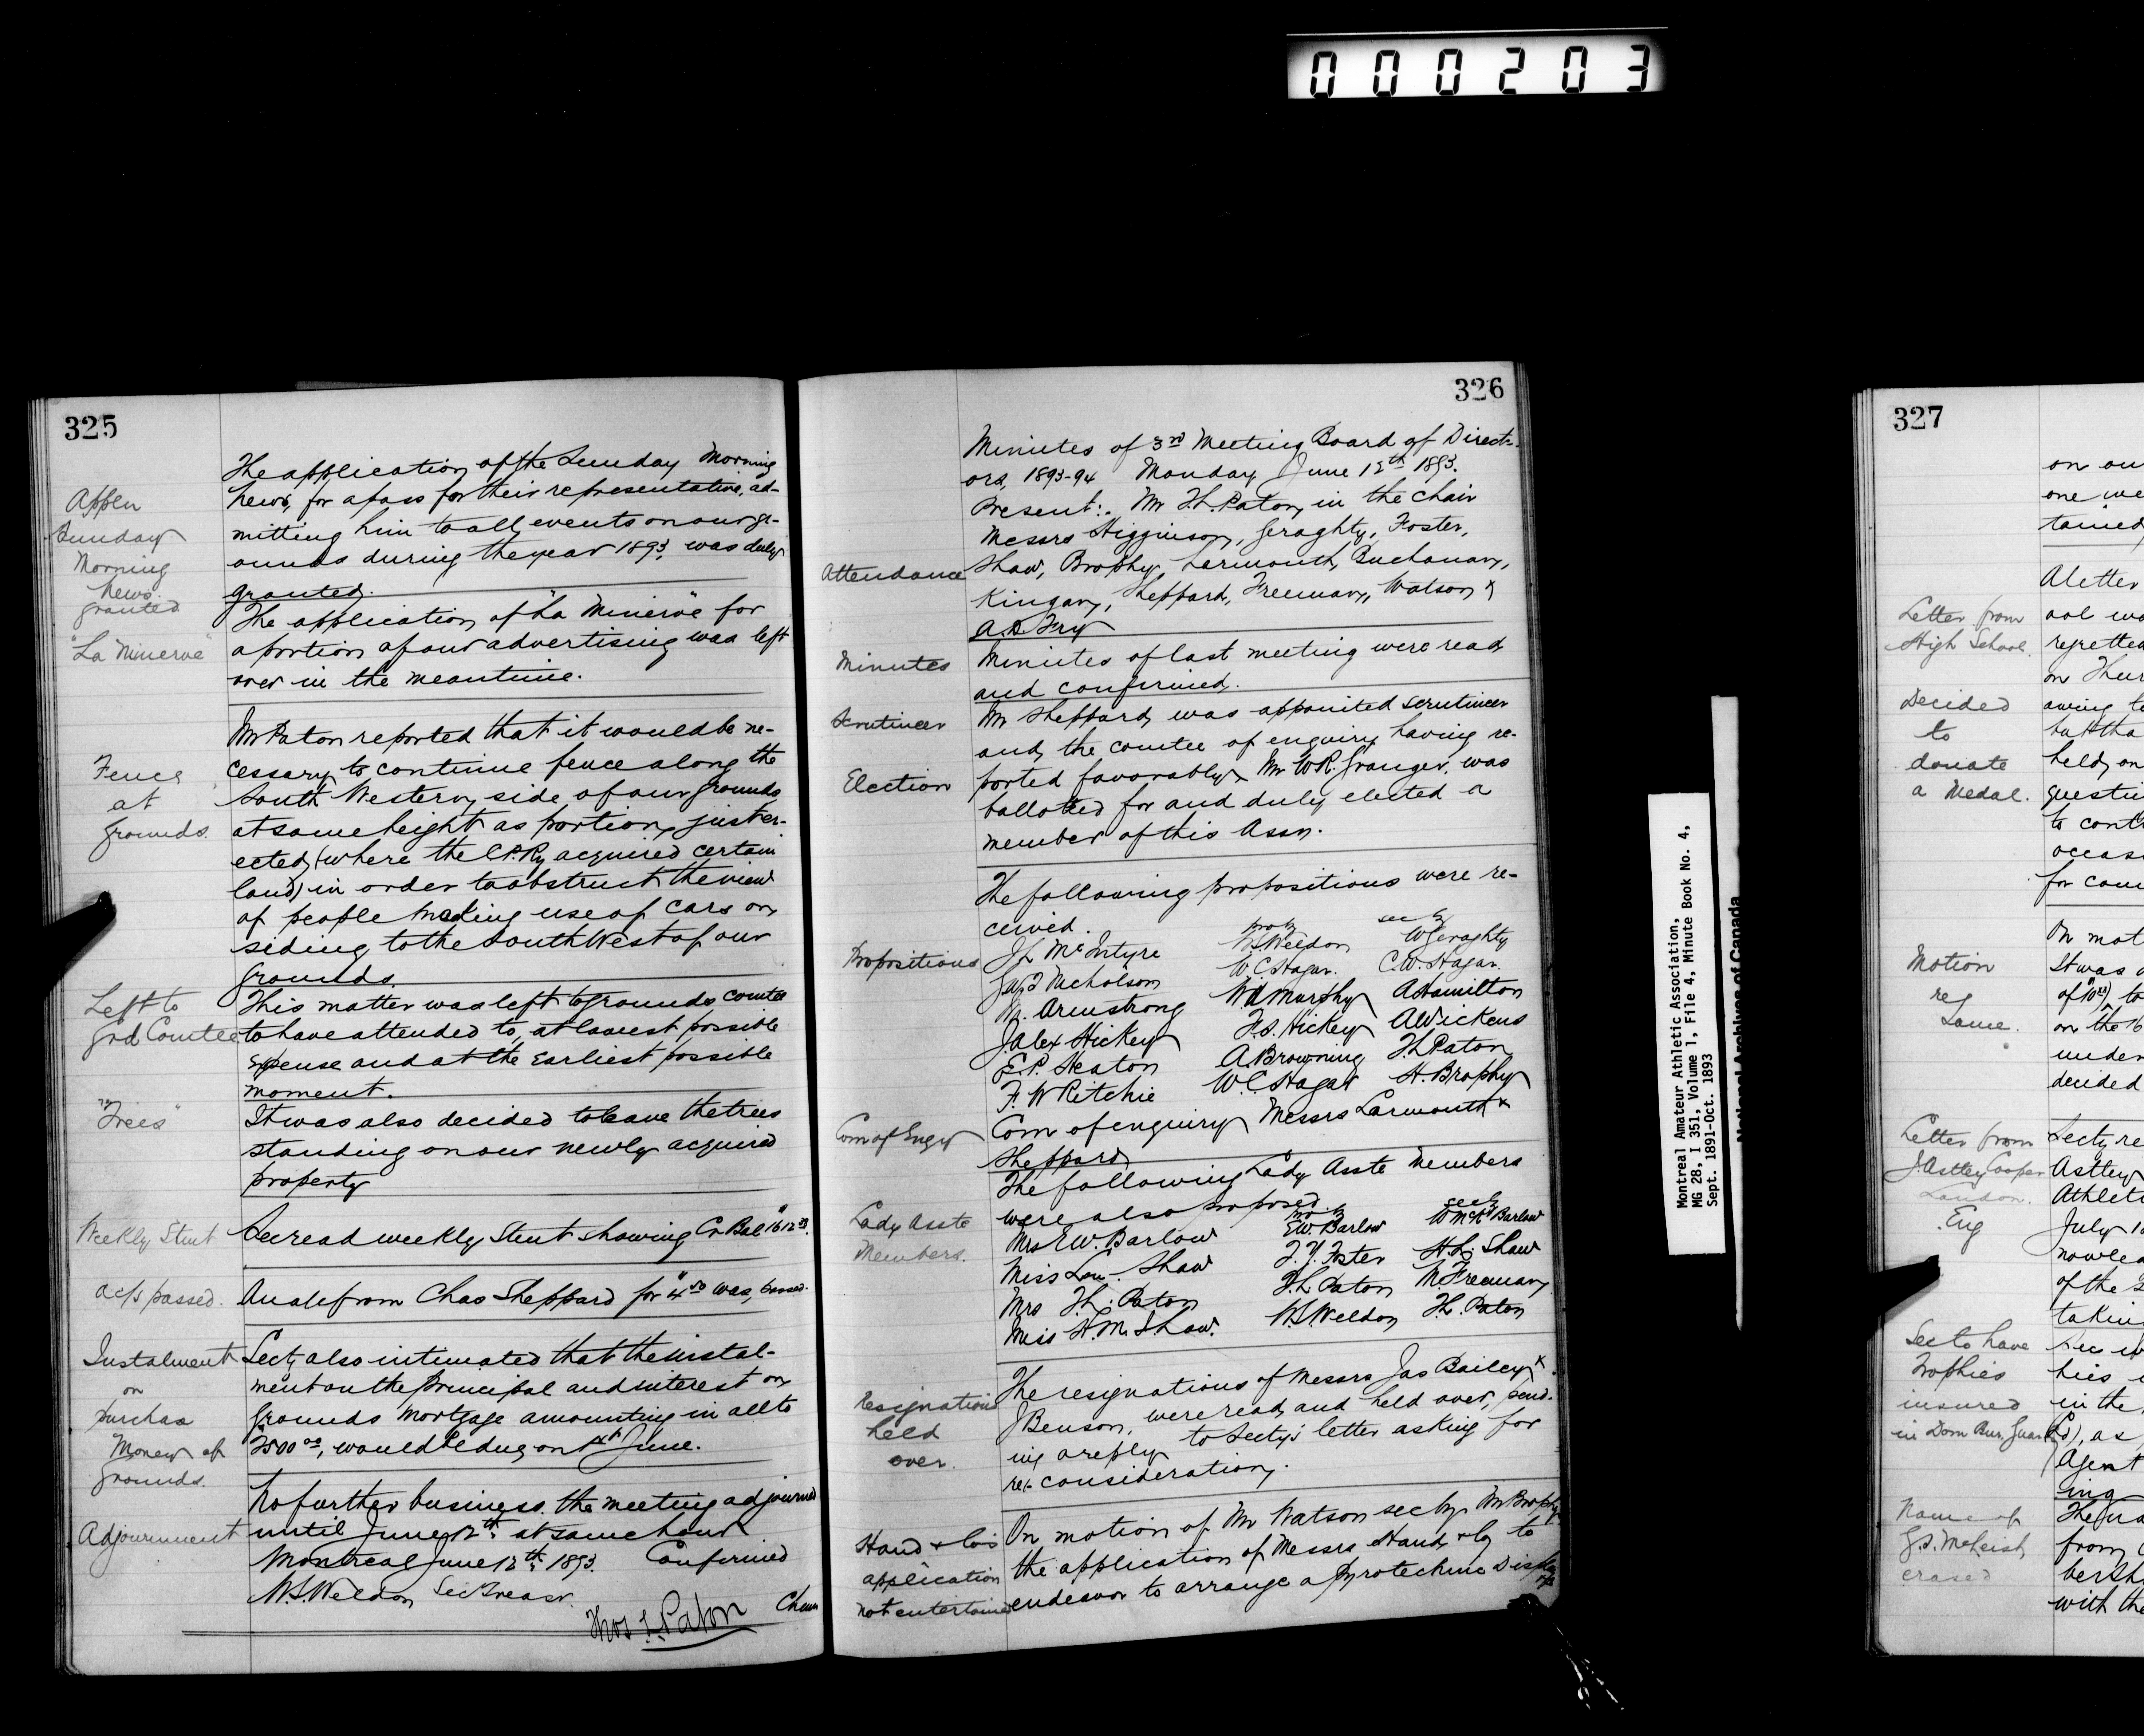 000203
325
The application of the Sunday Morning
Appln
News, for a pass for their representative, ad-
Sunday
mitting him to all events on our gr-
Morning
ounds during the year 1893, was duly
News
granted
granted.
The application of "La Minerve" for
"La Minerve"
a portion of our advertising was left
over in the meantime.
Mr Paton reported that it would be ne-
Fence
cessary to continue fence along the
at
South Western side of our grounds
grounds.
at same height as portion just er-
ected (where the C.P.Ry acquired certain
land) in order to obstruct the view
of people making use of cars on
siding to the South West of our
grounds.
Left to
This matter was left to grounds comtee
Grd Comtee
to have attended to, at lowest possible
expense and at the earliest possible
moment.
"Trees"
It was also decided to leave the trees
standing on our newly acquired
property
Weekly Stmt
Sec read weekly Stmt showing Cr Bal
a/cs passed.
An a/c from Chas Sheppard for was passed.
Instalment
Secty also intimated that the instal-
on
ment on the principal and interest on
purchase
grounds mortgage amounting in all to
Money of
would be due on June.
grounds.
No further business the meeting adjourned
Adjournment
until June 12th at same hour
Montreal June 12th 1893. Confirmed
W.S. Weldon Sec Treasr.
Thos L. Paton Chmn
326
Minutes of 3rd Meeting Board of Direct-
ors, 1893-94 Monday June 12th 1893.
Present:- Mr T.L. Paton, in the chair
Messrs Higginson, Geraghty, Foster,
Attendance
Shaw, Brophy, Larmouth, Buchanan,
Kingan, Sheppard, Freeman, Watson &
A.D. Fry
Minutes
Minutes of last meeting were read
and confirmed.
Scrutineer
Mr Sheppard was appointed scrutineer
and the comtee of enquiry having re-
Election
ported favorably Mr W.R. Granger, was
balloted for and duly elected a
member of this Assn.
The following propositions were re-
ceived.
prop by sec by
Propositions
J.L. McIntyre W.S. Weldon W Geraghty
Jas Nicholson W.C. Hagar. C.W. Hagar.
R. Armstrong W.H. Murphy A Hamilton
J. Alex Hickey F.S. Hickey A Wickens
E.P. Heaton A. Browning T.L. Paton
F.W Ritchie W.C. Hagar H. Brophy
Com of Enqry
Com of enquiry Messrs Larmouth &
Sheppard
The following Lady Asste members
Lady Asste
were also proposed.
Members.
Mrs E.W. Barlow E.W. Barlow W McK Barlow
Miss Lou. Shaw F.Y. Foster H.L. Shaw
Mrs T.L. Paton T.L. Paton N. Freeman
Miss H.M. Shaw. W.S. Weldon T.L. Paton
Resignations
The resignations of Messrs Jas Bailey &
held
J Benson, were read and held over, pend-
over.
ing a reply to Secty's letter asking for
re-consideration.
Hand & Co's
On motion of Mr Watson sec by Mr Brophy
application
the application of Messrs Hand & Co to
not entertained
endeavor to arrange a Pyrotechnic Display
Montreal Amateur Athletic Association,
MG 28, I 351, Volume 1, File 4, Minute Book No. 4,
Sept. 1891-Oct. 1893
National Archives of Canada
327
on our
one we
tained
A letter
Letter from
ool wa
High School.
regretted
on Thur
Decided
owing to
to
but tha
donate
held, on
a Medal.
questi
to cont
occas
for com
On mot
Motion
It was
re
Same.
on the 16
under
decided
Letter from
Secty re
J Astley Cooper
Astley
London.
Athleti
Eng
July 1
nowled
of the
taking
Sec to have
Trophies
hies
insured
in the
as
Agent
ing
Name of
The na
from
erased
bersh
with the